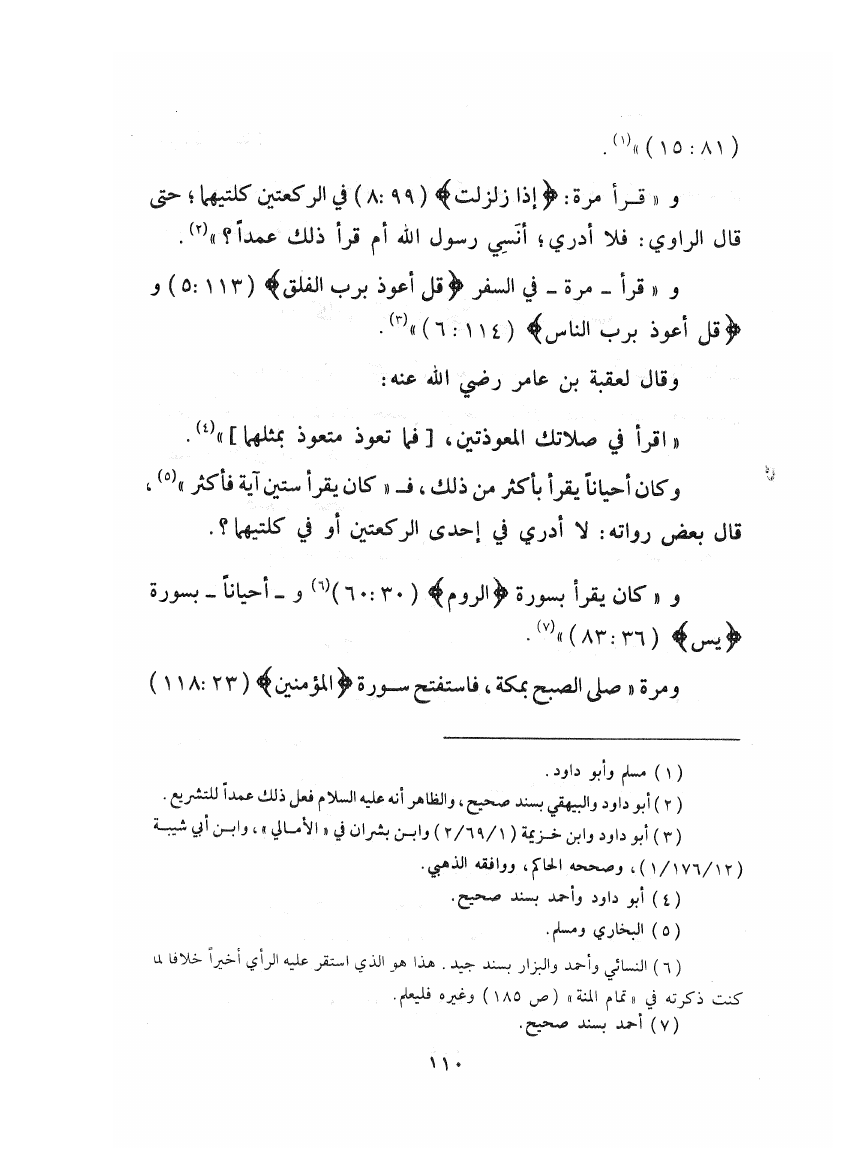 (١٥:٨١)»(١).
و « قـرأ مرة: ﴿إذا زلزلت﴾ (٨:٩٩) في الركعتين كلتيهما؛ حتى
قال الراوي: فلا أدري؛ أنَسِي رسول الله أم قرأ ذلك عمداً؟»(٢).
و « قرأ ـ مرة ـ في السفر ﴿قل أعوذ برب الفلق﴾ (٥:١١٣) و
﴿قل أعوذ برب الناس﴾ (٦:١١٤)»(٣).
وقال لعقبة بن عامر رضي الله عنه:
« اقرأ في صلاتك المعوذتين، [فما تعوذ متعوذ بمثلهما]»(٤).
وكان أحياناً يقرأ بأكثر من ذلك، فـ « كان يقرأ ستين آية فأكثر »(٥)،
قال بعض رواته: لا أدري في إحدى الركعتين أو في كلتيهما؟.
و « كان يقرأ بسورة ﴿الروم﴾ (٦٠:٣٠)(٦) و ـ أحياناً ـ بسورة
﴿يس﴾ (٨٣:٣٦)»(٧).
ومرة « صلى الصبح بمكة، فاستفتح سـورة ﴿المؤمنين﴾ (١١٨:٢٣)
(١) مسلم وأبو داود.
(٢) أبو داود والبيهقي بسند صحيح، والظاهر أنه عليه السلام فعل ذلك عمداً للتشريع.
(٣) أبو داود وابن خـزيمة (٢/٦٩/١) وابـن بشران في « الأمـالي »، وابـن أبي شيبـة
(١/١٧٦/١٢)، وصححه الحاكم، ووافقه الذهبي.
(٤) أبو داود وأحمد بسند صحيح.
(٥) البخاري ومسلم.
(٦) النسائي وأحمد والبزار بسند جيد. هذا هو الذي استقر عليه الرأي أخيراً خلافا لما
كنت ذكرته في « تمام المنة » (ص ١٨٥) وغيره فليعلم.
(٧) أحمد بسند صحيح.
١١٠